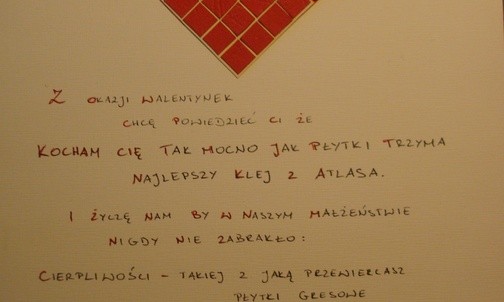 Z OKAZJI WALENTYNEK
CHCĘ POWIEDZIEĆ CI ŻE
KOCHAM CIĘ TAK MOCNO JAK PŁYTKI TRZYMA
NAJLEPSZY KLEJ Z ATLASA.
I ŻYCZĘ NAM BY W NASZYM MAŁŻEŃSTWIE
NIGDY NIE ZABRAKŁO:
CIERPLIWOŚCI - TAKIEJ Z JAKĄ PRZEWIERCASZ
PŁYTKI GRESOWE